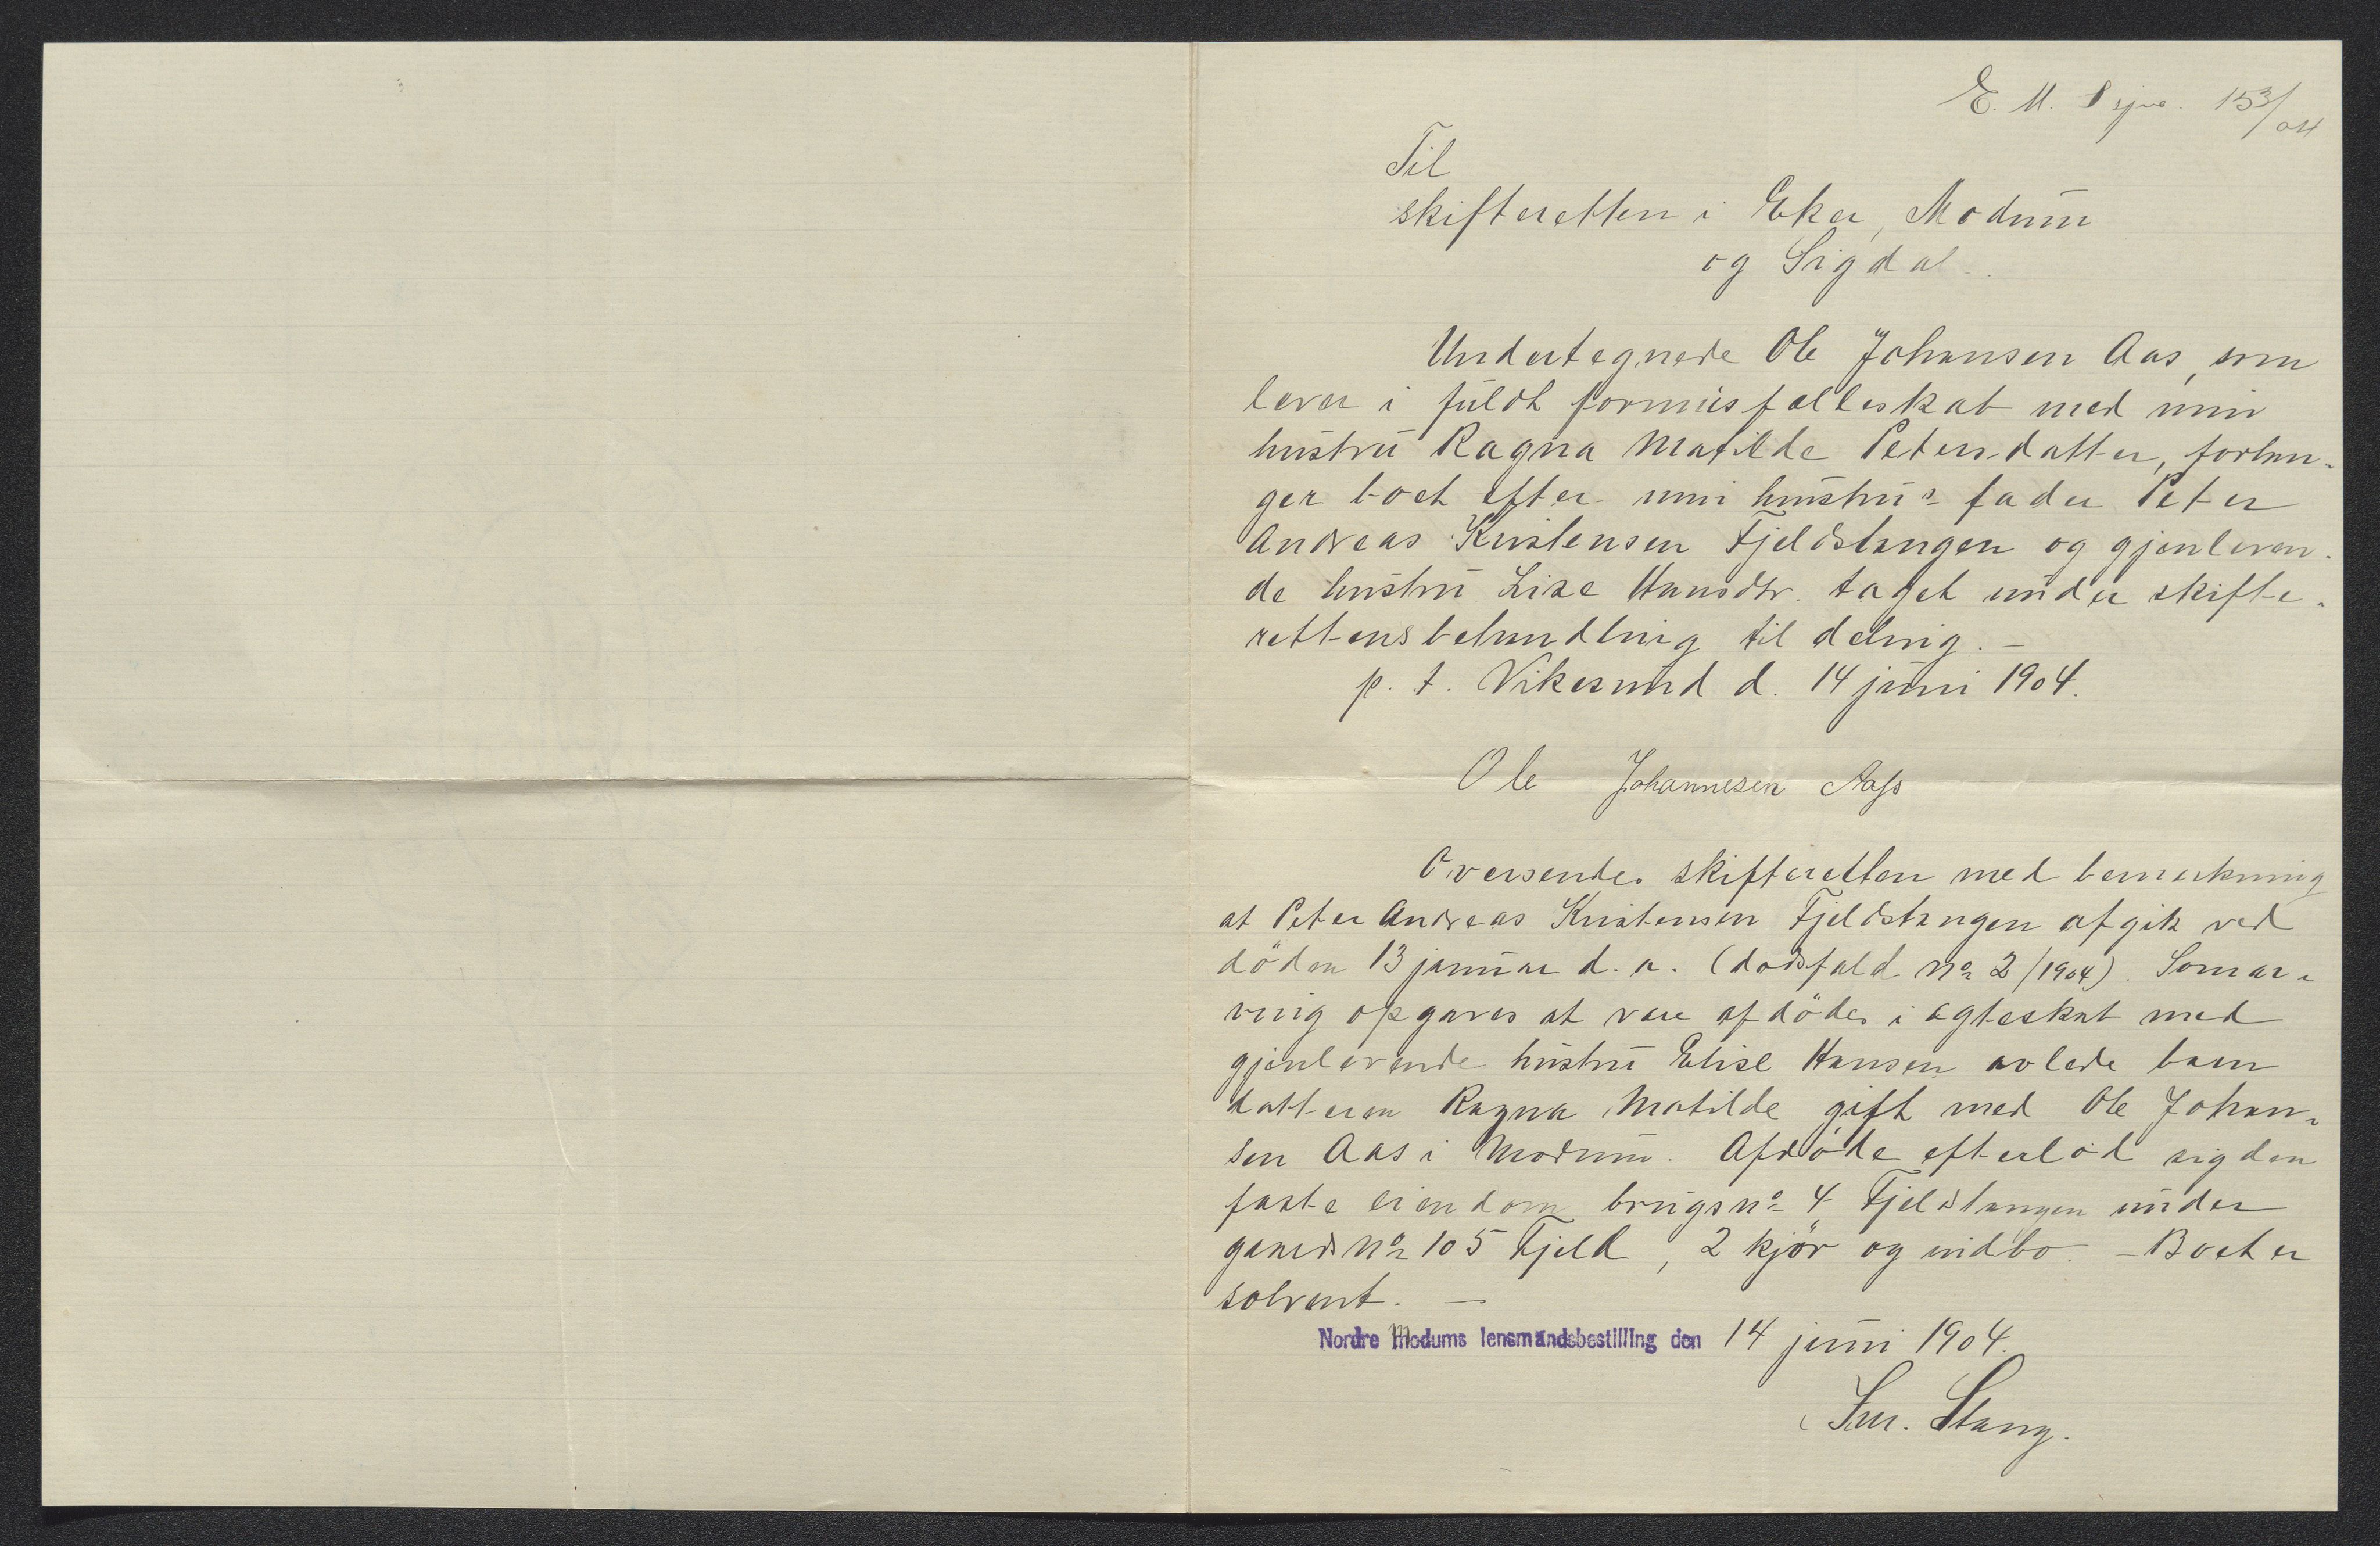 E. M. S sjно. 153/04
Til
skifteretten i Eker, Modum
og Sigdal.
Undertegnede Ole Johansen Aas, som
lever i fuldt formuesfælleskab med min
hustru Ragna Matilde Petersdatter, forlan-
ger boet efter min hustru's fader Peter
Andreas Kristensen Fjeldstangen og gjenleven-
de hustru Lise Hansdtr. taget under skifte-
rettens behandling til deling. —
p. t. Vikesund d. 14 juni 1904.
Ole Johannesen Aass
Oversendes skifteretten med bemerkning
at Peter Andreas Kristensen Fjeldstangen afgik ved
döden 13 januar d. a. (dødsfald No 2/1904). Som ar-
ving opgaves at være afdödes i egteskab med
gjenlevende hustru Elise Hansen avlede barn
datteren Ragna Matilde gift med Ole Johan-
sen Aas i Modum. Afdöde efterlod sig den
faste eiendom brugsno 4 Fjeldstangen under
gaardsNo 105 Fjeld, 2 kjör og indbo. — Boet er
solvent. —
Nordre Modums lensmandsbestilling den 14 juni 1904.
Stang.